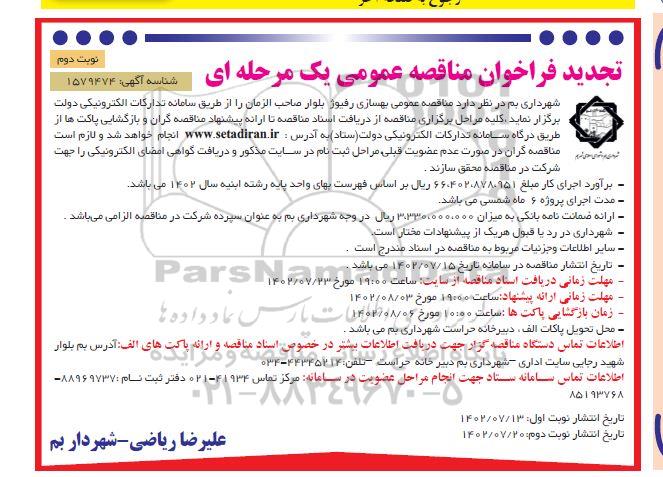 رجوع به نسخه آخر
نوبت دوم
شناسه آگهی: ۱۵۷۹۴۷۴
تجدید فراخوان مناقصه عمومی یک مرحله ای
شهرداری بم در نظر دارد مناقصه عمومی بهسازی رفیوژ بلوار صاحب الزمان را از طریق سامانه تدارکات الکترونیکی دولت
برگزار نماید .کلیه مراحل برگزاری مناقصه از دریافت اسناد مناقصه تا ارائه پیشنهاد مناقصه گران و بازگشایی پاکت ها از
طریق درگاه سـامانه تدارکات الکترونیکی دولت(ستاد)به آدرس : www.setadiran.ir انجام خواهد شد و لازم است
مناقصه گران در صورت عدم عضویت قبلی،مراحل ثبت نام در سـایت مذکور و دریافت گواهی امضای الکترونیکی را جهت
شرکت در مناقصه محقق سازند .
– برآورد اجرای کار مبلغ ۶۶،۴۰۲،۸۷۸،۹۵۱ ریال بر اساس فهرست بهای واحد پایه رشته ابنیه سال ۱۴۰۲ می باشد.
– مدت اجرای پروژه ۶ ماه شمسی می باشد.
– ارائه ضمانت نامه بانکی به میزان ۳،۳۳۰،۰۰۰،۰۰۰ ریال در وجه شهرداری بم به عنوان سپرده شرکت در مناقصه الزامی می‌باشد .
– شهرداری در رد یا قبول هریک از پیشنهادات مختار است.
– سایر اطلاعات وجزئیات مربوط به مناقصه در اسناد مندرج است .
– تاریخ انتشار مناقصه در سامانه تاریخ ۱۴۰۲/۰۷/۱۵ می باشد .
– مهلت زمانی دریافت اسناد مناقصه از سایت: ساعت ۱۹:۰۰ مورخ ۱۴۰۲/۰۷/۲۳
– مهلت زمانی ارائه پیشنهاد:ساعت ۱۹:۰۰ مورخ ۱۴۰۲/۰۸/۰۳
– زمان بازگشایی پاکت ها :ساعت ۱۰:۰۰ مورخ ۱۴۰۲/۰۸/۰۶
– محل تحویل پاکات الف ، دبیرخانه حراست شهرداری بم می باشد .
اطلاعات تماس دستگاه مناقصه گزار جهت دریافت اطلاعات بیشتر در خصوص اسناد مناقصه و ارائه پاکت های الف:آدرس بم بلوار
شهید رجایی سایت اداری –شهرداری بم دبیر خانه حراست –تلفن:۴۴۳۴۵۲۱۴-۰۳۴
اطلاعات تماس سـامانه سـتاد جهت انجام مراحل عضویت در سـامانه: مرکز تماس ۴۱۹۳۴-۰۲۱ دفتر ثبت نـام :۸۸۹۶۹۷۳۷-
۸۵۱۹۳۷۶۸
تاریخ انتشار نوبت اول: ۱۴۰۲/۰۷/۱۳
تاریخ انتشار نوبت دوم:۱۴۰۲/۰۷/۲۰
علیرضا ریاضی–شهردار بم
ParsNamadData
۰۲۱-۸۸۳۴۹۶۷۰-۵